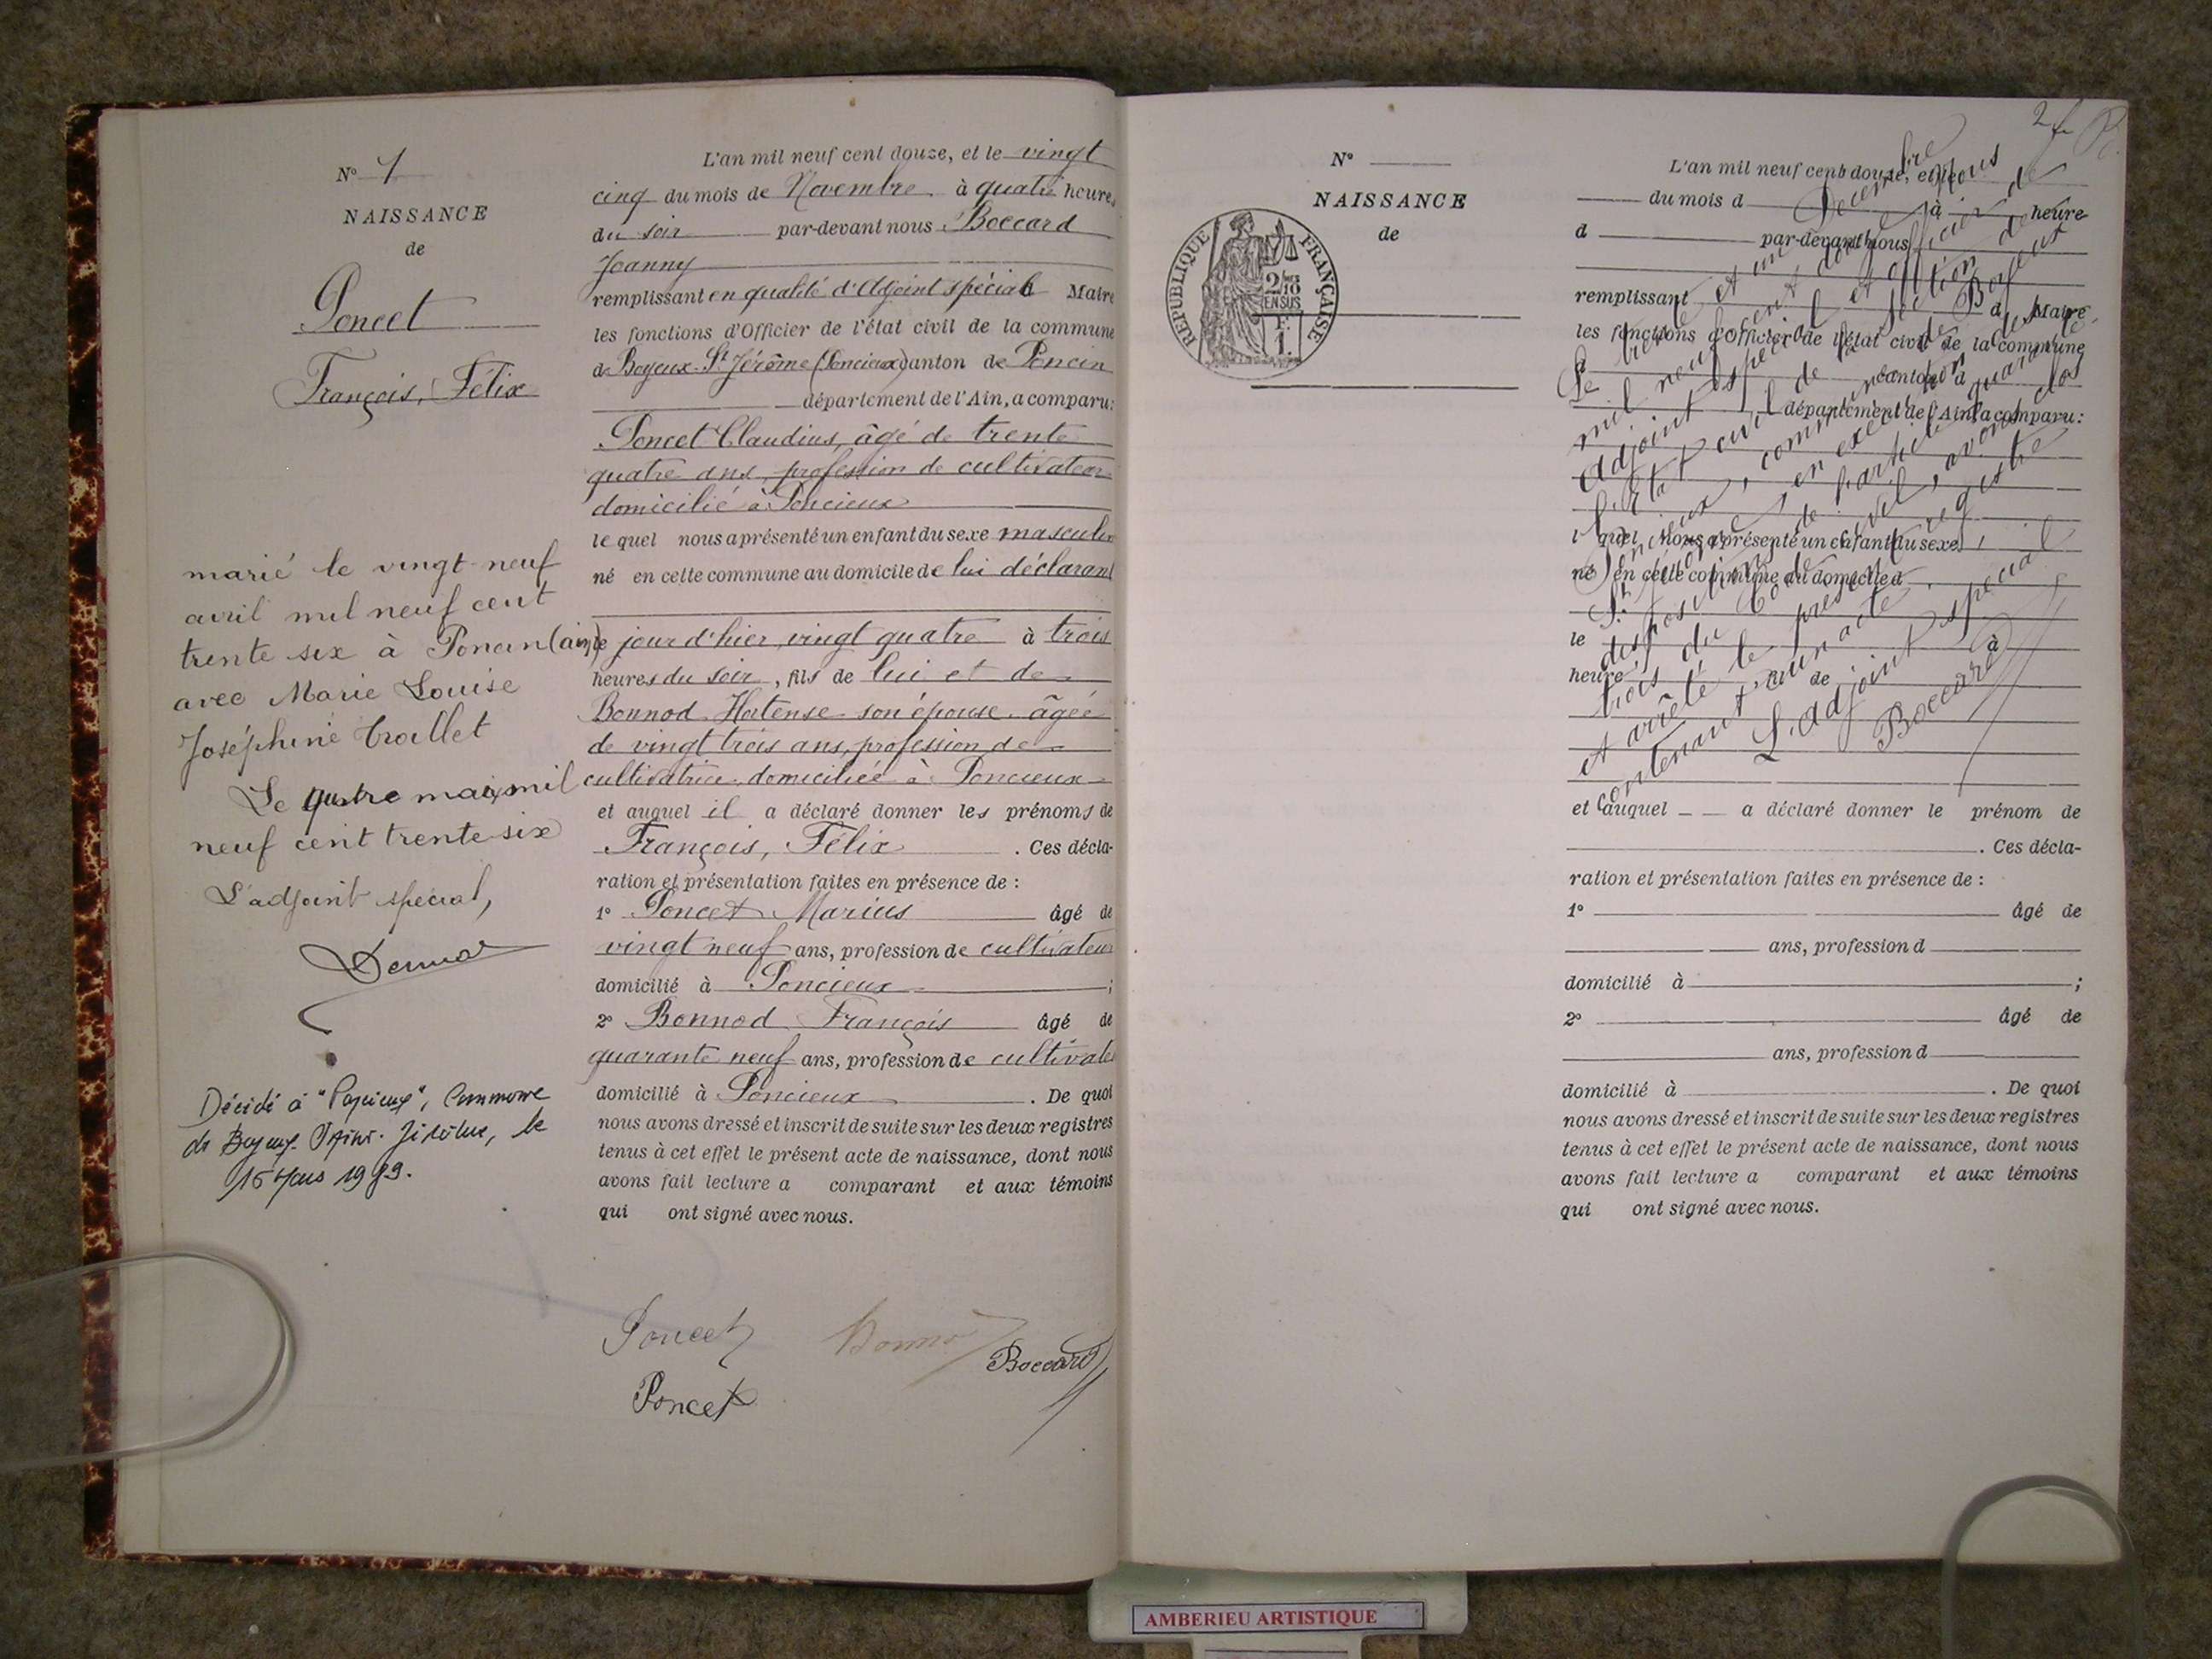 N° 1
NAISSANCE
de
Poncet
François, Félix
marié le vingt-neuf
avril mil neuf cent
trente six à Poncin (ain)
avec Marie Louise
Joséphine
Le quatre mai mil
neuf cent trente-six
L'adjoint spécial,
Décédé à "Poncieux", Commune
de Boyeux-Saint-Jérôme, le
L'an mil neuf cent douze, et le vingt
cinq du mois de Novembre à quatre heures
du soir par-devant nous Boccard
Joanny
remplissant en qualité d'Adjoint spécial Maire
les fonctions d'Officier de l'état civil de la commune
de Boyeux-St Jérôme (Poncieux) canton de Poncin
département de l'Ain, a comparu:
Poncet Claudius, âgé de trente
quatre ans, profession de cultivateur
domicilié à Poncieux
lequel nous a présenté un enfant du sexe masculin
né en cette commune au domicile de lui déclarant
le jour d'hier, vingt quatre à trois
heures du soir, fils de lui et de
Bonnod Hortense son épouse âgée
de vingt trois ans, profession de
cultivatrice domiciliée à Poncieux
et auquel il a déclaré donner les prénoms de
François, Félix. Ces décla-
ration et présentation faites en présence de :
1° Poncet Marius âgé de
vingt neuf ans, profession de cultivateur
domicilié à Poncieux ;
2° Bonnod François âgé de
quarante neuf ans, profession de
domicilié à Poncieux. De quoi
nous avons dressé et inscrit de suite sur les deux registres
tenus à cet effet le présent acte de naissance, dont nous
avons fait lecture a comparant et aux témoins
qui ont signé avec nous.
Poncet Boccard
Poncet
N°
NAISSANCE
de
RÉPUBLIQUE FRANÇAISE
2/10
EN SUS
1 F.
L'an mil neuf cent douze, et le
du mois d à heure
d par-devant nous
remplissant d Maire
les fonctions d'Officier de l'état civil de la commune
d canton d
département de l'Ain, a comparu:
l quel nous a présenté un enfant du sexe
né en cette commune au domicile d
le à
heure , fil de
et auquel a déclaré donner le prénom de
. Ces décla-
ration et présentation faites en présence de :
1° âgé de
ans, profession d
domicilié à ;
2° âgé de
ans, profession d
domicilié à . De quoi
nous avons dressé et inscrit de suite sur les deux registres
tenus à cet effet le présent acte de naissance, dont nous
avons fait lecture a comparant et aux témoins
qui ont signé avec nous.
Le trente et un Décembre
mil neuf cent douze, Nous
Adjoint spécial et officier de
l'état civil de la section de
Poncieux, commune de Boyeux
St Jérôme, en exécution des
dispositions de l'article quarante
trois du Code civil, avons clos
et arrêté le présent registre
contenant un acte.
L'Adjoint spécial
Boccard
AMBERIEU ARTISTIQUE